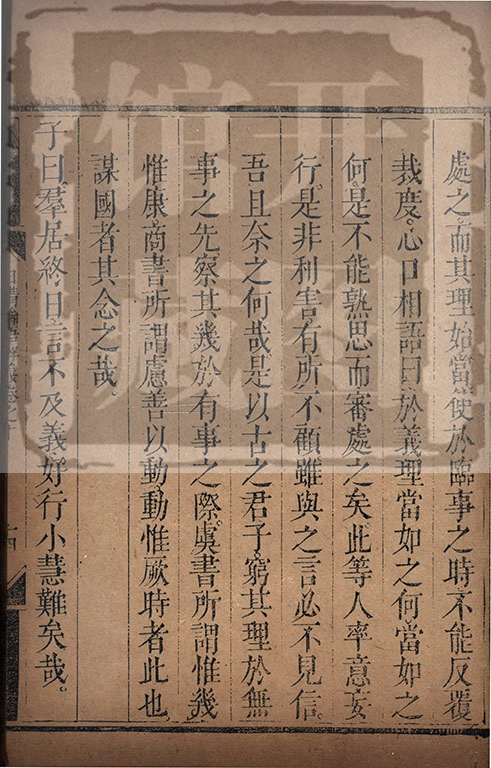 處之而其理始當使於臨事之時不能反覆
裁度心口相語曰於義理當如之何當如之
何是不能熟思而審處之矣此等人率意妄
行是非利害有所不顧雖與之言必不見信
吾且奈之何哉是以古之君子窮其理於無
事之先察其幾於有事之際虞書所謂惟幾
惟康商書所謂慮善以動動惟厥時者此也
謀國者其念之哉
子曰羣居終日言不及義好行小慧難矣哉